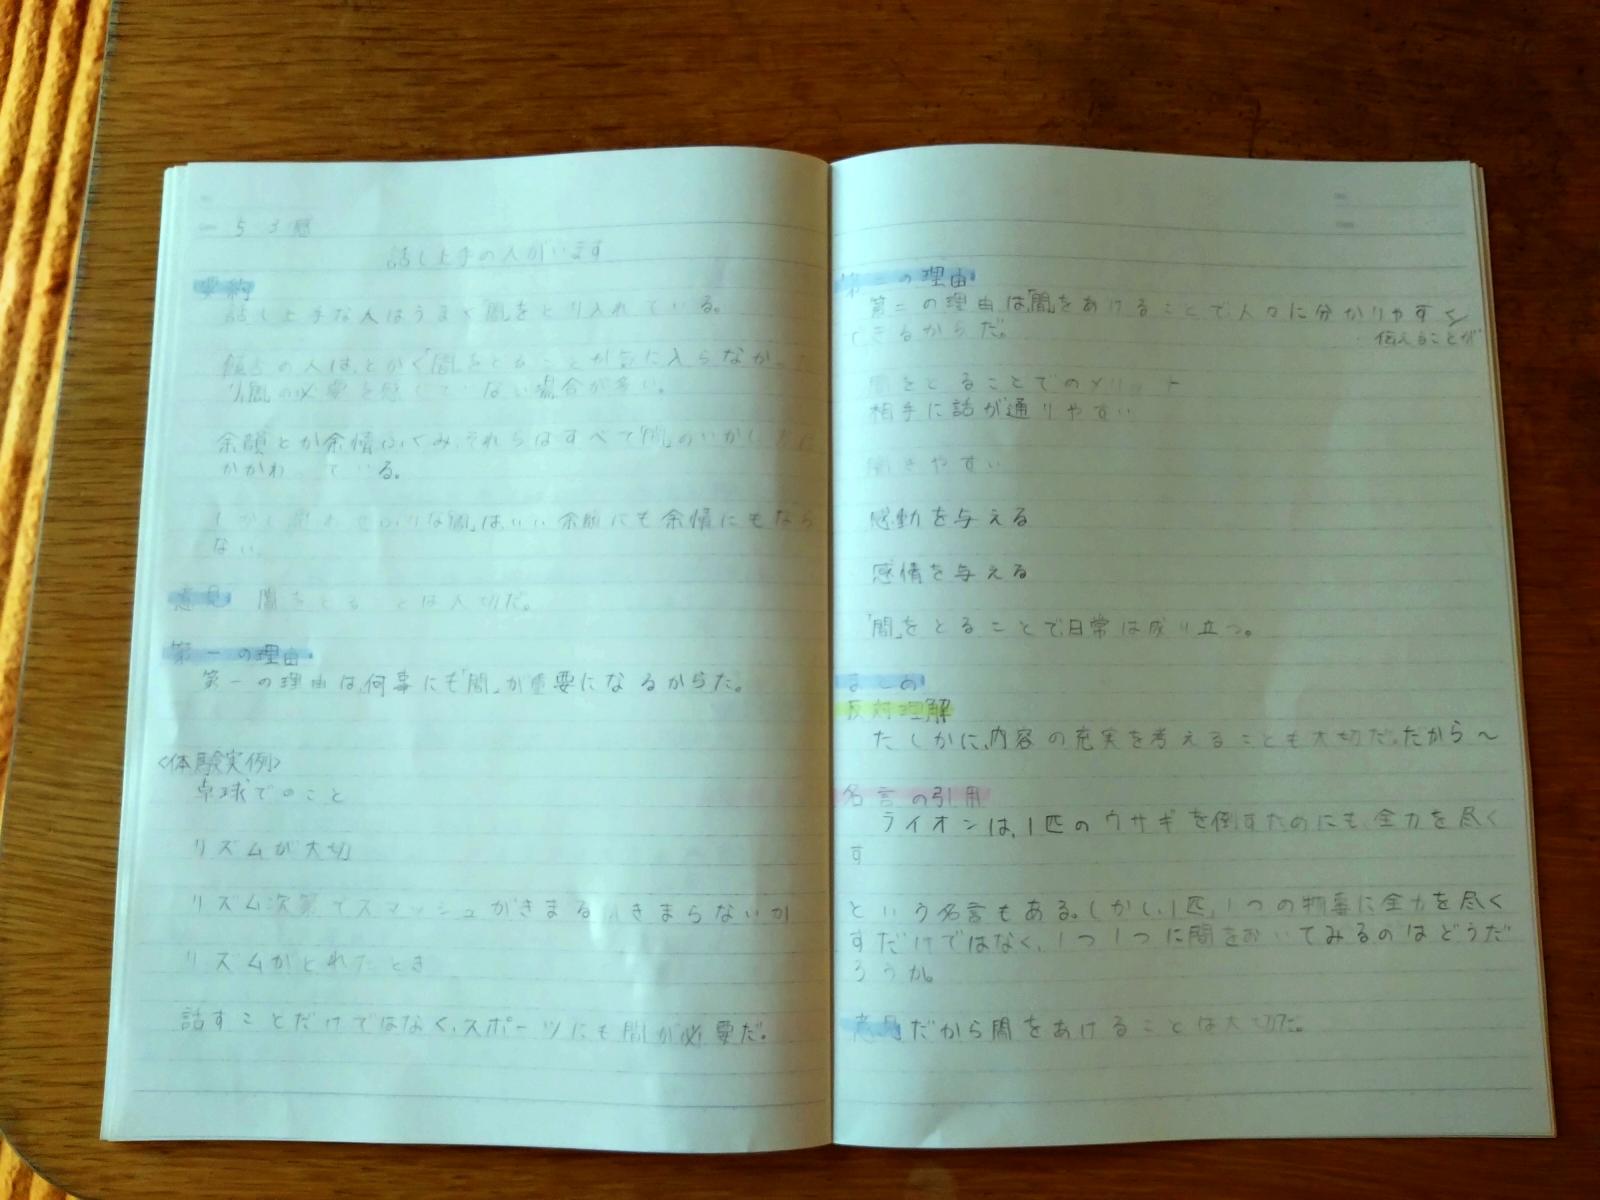 話し上手の人がいます
要約
話し上手な人はうまく「間」をとり入れている。
の人は、とかく「間」をとることが気に入らなかった
り、間の必要を感じていない場合が多い。
余韻とか余情ふくみ、それらはすべて「間」のいかし方に
かかわっている。
な「間」は、いい余韻にも余情にもなら
ない。
意見 間をとることは大切だ。
第一の理由
第一の理由は、何事にも「間」が重要になるからだ。
〈体験実例〉
卓球でのこと
リズムが大切
リズム次第でスマッシュがきまるかきまらないか
リズムがとれたとき
話すことだけではなく、スポーツにも間が必要だ。
第二の理由
第二の理由は、「間」をあけることで、人々に分かりやすく
伝えることが
できるからだ。
間をとることでのメリット
相手に話が通りやすい
聞きやすい
感動を与える
感情を与える
「間」をとることで、日常は成り立つ。
まとめ
反対理解
たしかに、内容の充実を考えることも大切だ。だから〜
名言の引用
ライオンは、1匹のウサギを倒すためにも、全力を尽く
す
という名言もある。しかし、1匹、1つの物事に全力を尽く
すだけではなく、1つ1つに間をおいてみるのはどうだ
ろうか。
意見だから間をあけることは大切だ。